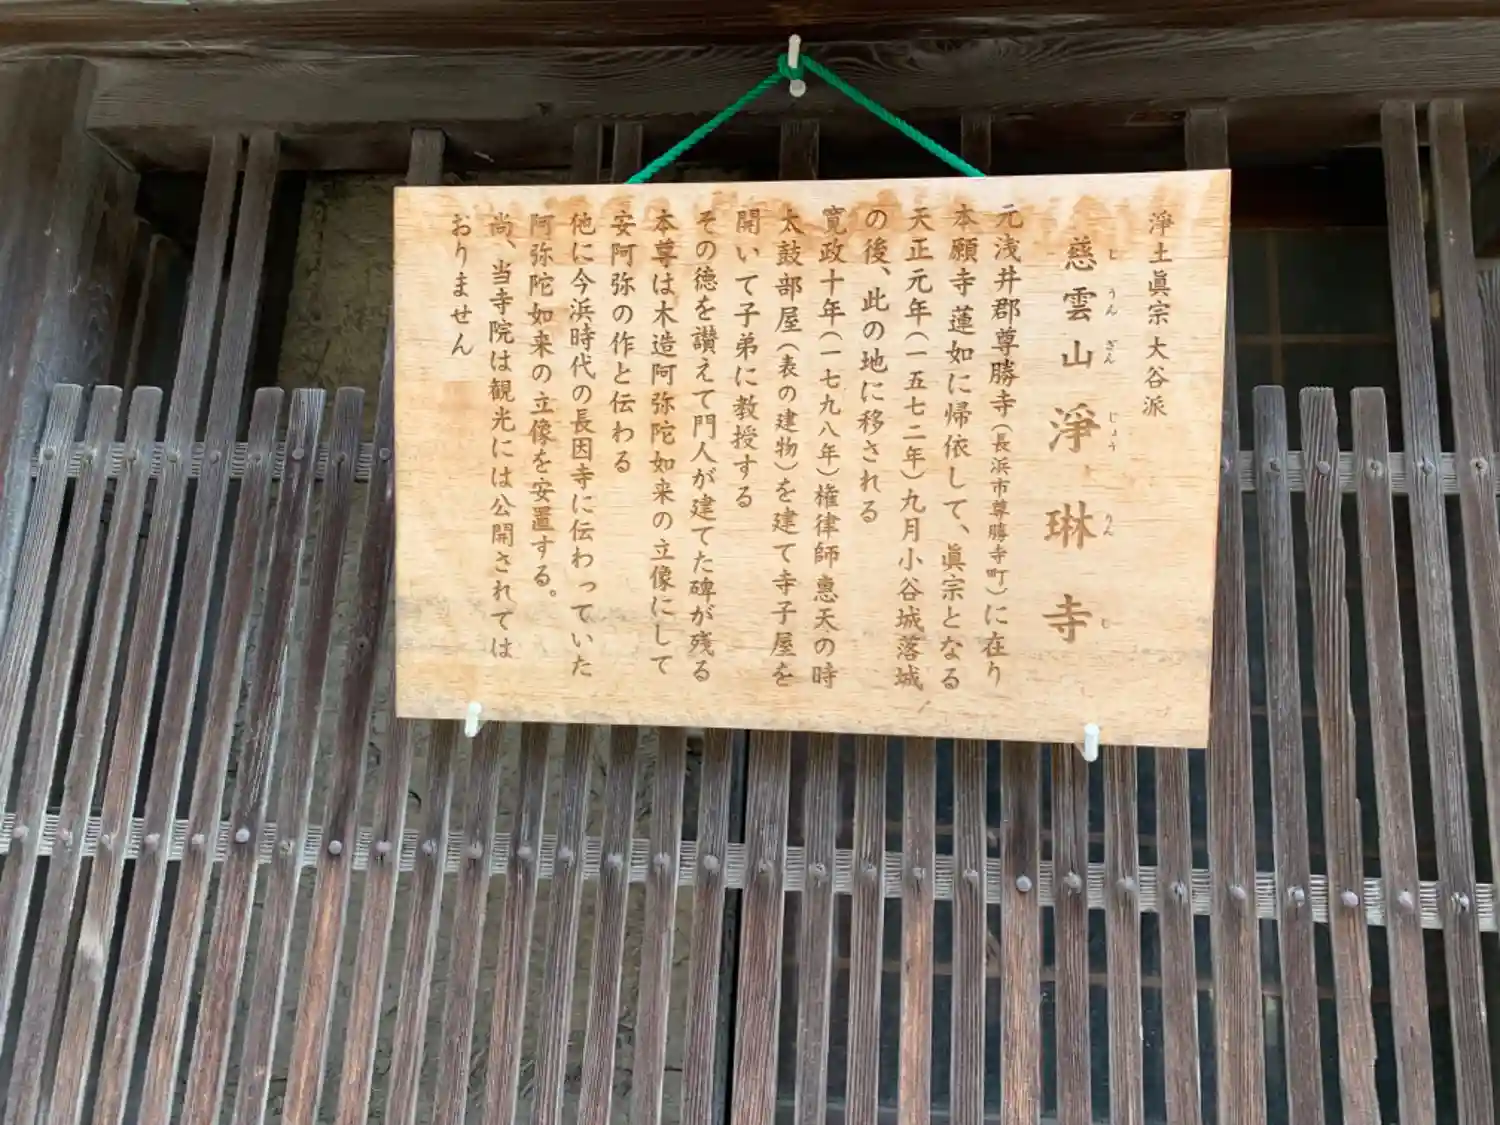 淨土眞宗大谷派
慈雲山淨琳寺
じうんざんじょうりんじ
元浅井郡尊勝寺(長浜市尊勝寺町)に在り
本願寺蓮如に帰依して、眞宗となる
天正元年(一五七二年)九月小谷城落城
の後、此の地に移される
寛政十年(一七九八年)権律師惠天の時
太鼓部屋(表の建物)を建て寺子屋を
開いて子弟に教授する
その徳を讃えて門人が建てた碑が残る
本尊は木造阿弥陀如来の立像にして
安阿弥の作と伝わる
他に今浜時代の長因寺に伝わっていた
阿弥陀如来の立像を安置する。
尚、当寺院は観光には公開されては
おりません